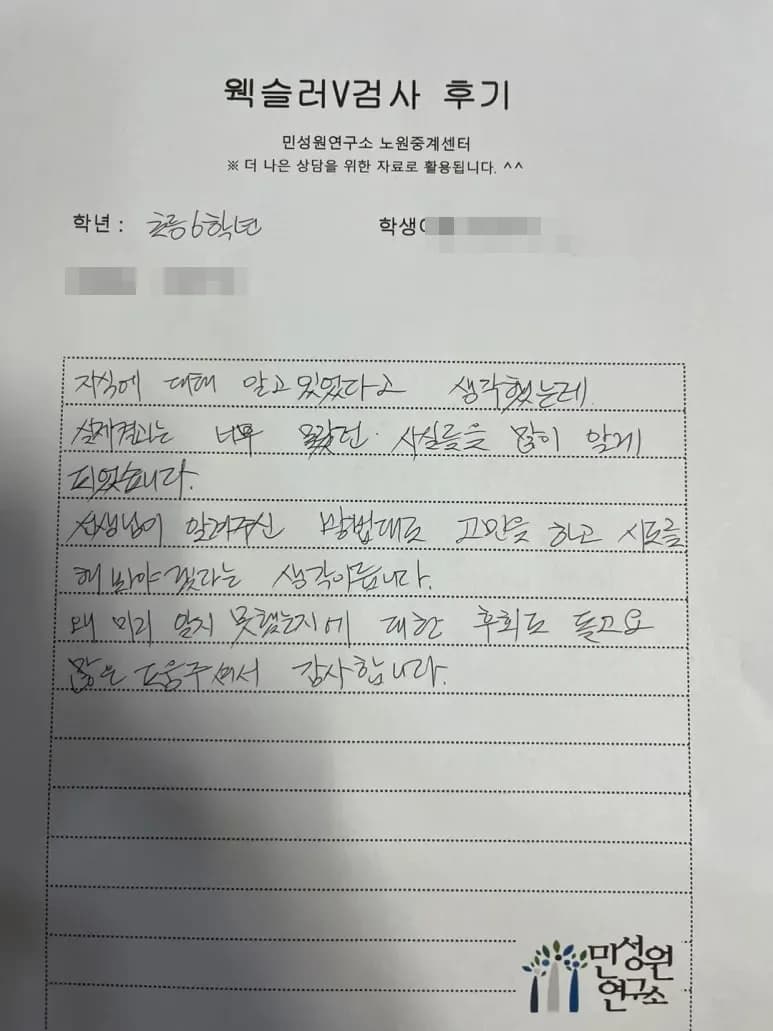 웩슬러V검사 후기
민성원연구소 노원중계센터
※ 더 나은 상담을 위한 자료로 활용됩니다. ^^
학년 : 초등6학년 학생
자식에 대해 알고있었다고 생각했는데
실제결과는 너무 몰랐던 사실들을 많이 알게
되었습니다.
선생님이 알려주신 방법대로 고민을 하고 시도를
해봐야겠다는 생각이듭니다.
왜 미리 알지 못했는지에 대한 후회도 들고요
많은 도움주셔서 감사합니다.
민성원
연구소